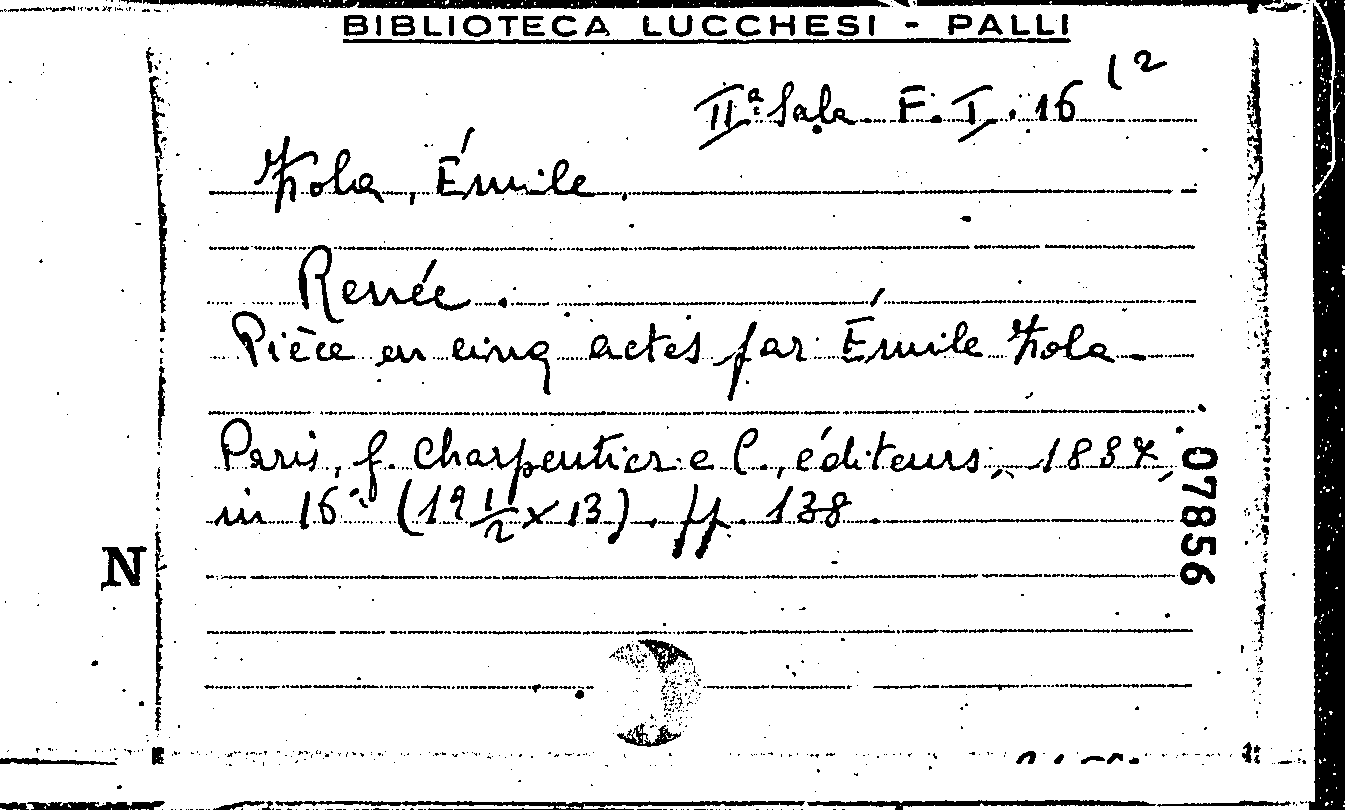 BIBLIOTECA LUCCHESI - PALLI
IIª Sala. F. I. 16 (2
Zola, Émile.
Renée.
Pièce en cinq actes par Émile Zola.
Paris, G. Charpentier e C., éditeurs, 1887,
in 16° (19 1/2 x 13). pp. 138.
N
07856